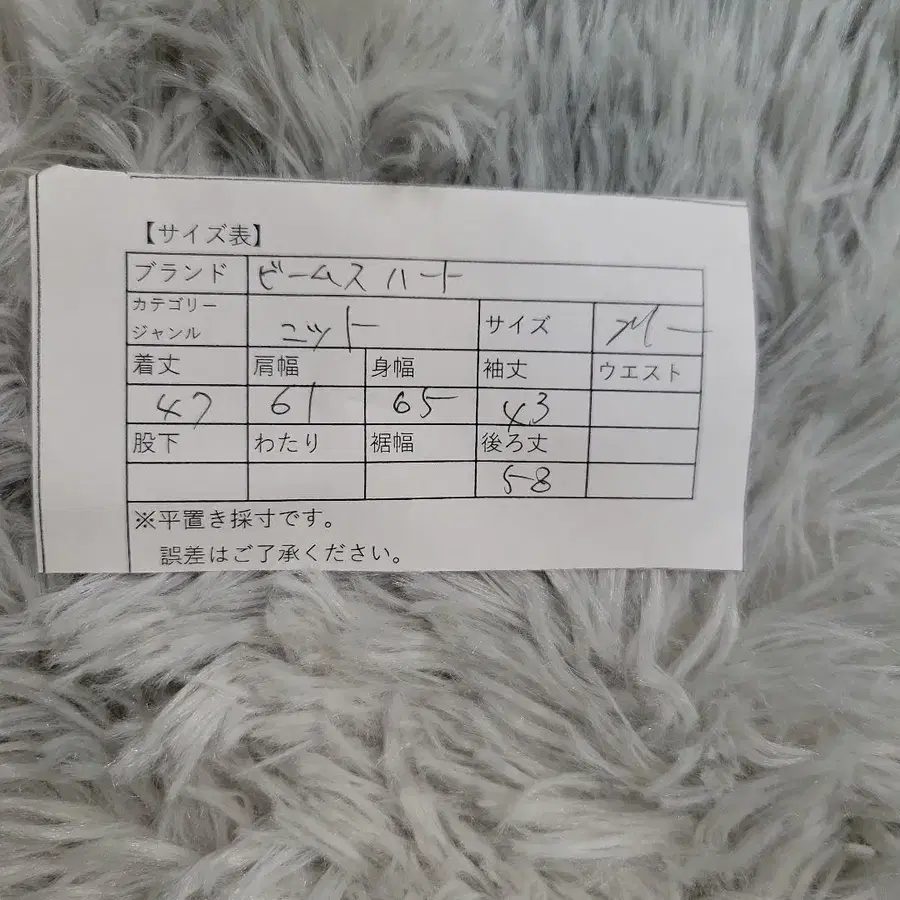 【サイズ表】
ブランド ビームス ハート
カテゴリー
ジャンル ニット サイズ フリー
着丈 肩幅 身幅 袖丈 ウエスト
47 61 65 43
股下 わたり 裾幅 後ろ丈
58
※平置き採寸です。
誤差はご了承ください。